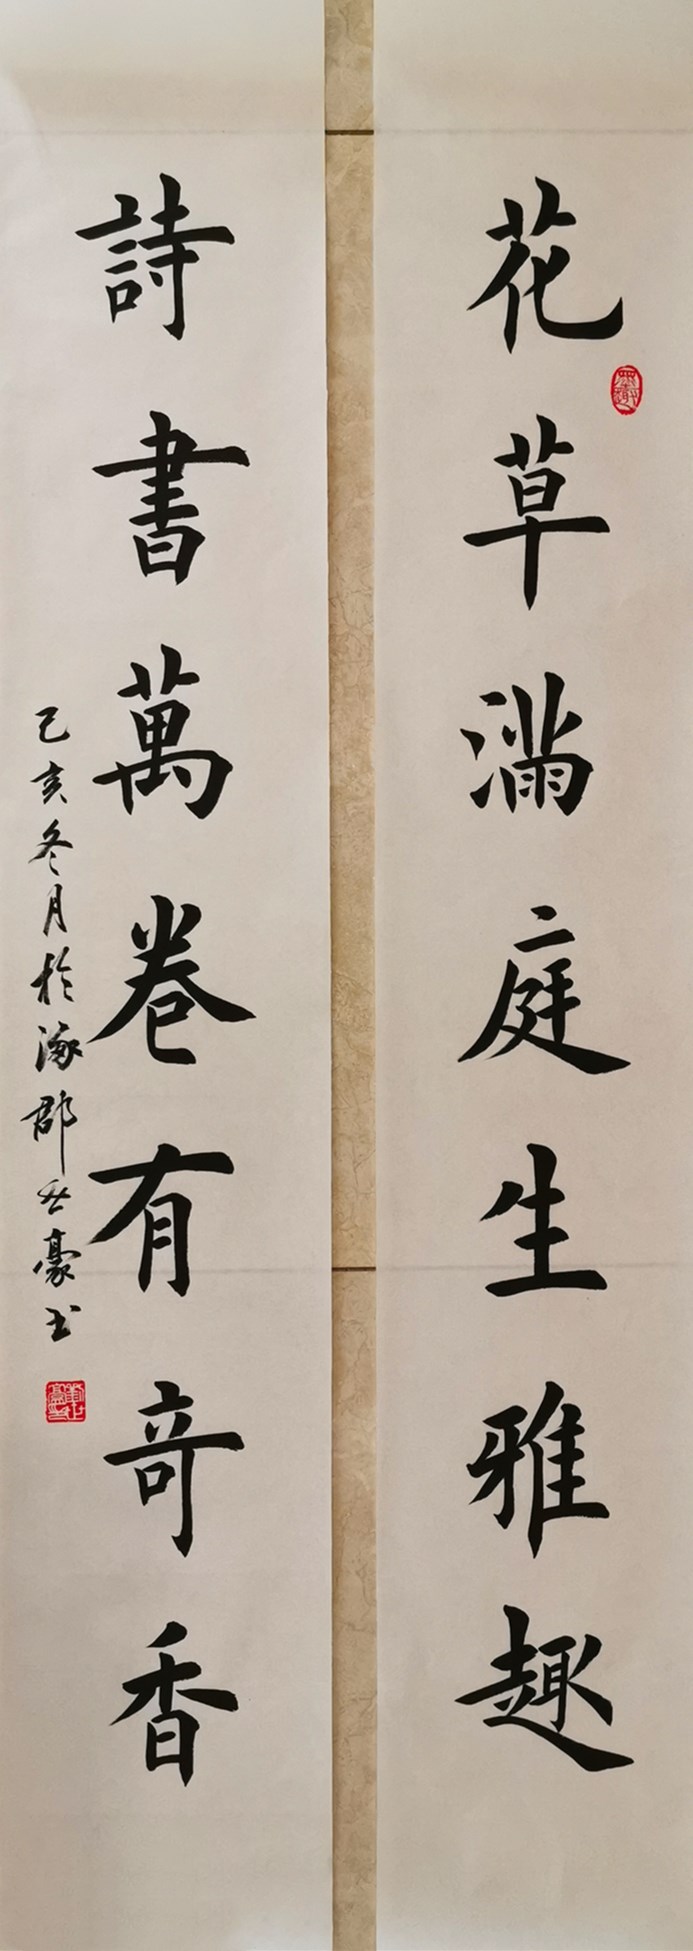 花草滿庭生雅趣
詩書萬卷有奇香
己亥冬月於涿郡世豪书